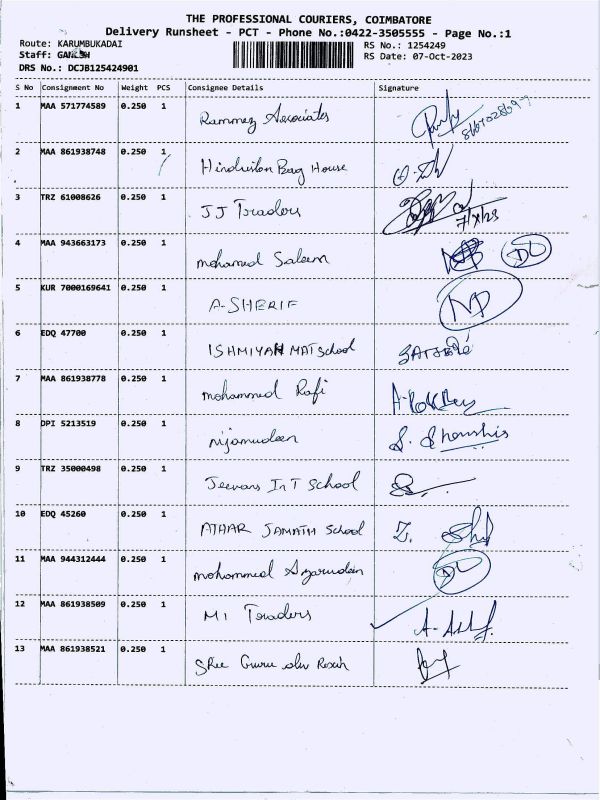 THE PROFESSIONAL COURIERS, COIMBATORE
Delivery Runsheet - PCT - Phone No.:0422-3505555 - Page No.:1
Route: KARUMBUKADAI RS No.: 1254249
Staff: GANESH RS Date: 07-Oct-2023
DRS No.: DCJB125424901
S No Consignment No Weight PCS Consignee Details Signature
1 MAA 571774589 0.250 1 Rammez Associates
2 MAA 861938748 0.250 1 Hindustan Bag House
3 TRZ 61008626 0.250 1 JJ Traders
4 MAA 943663173 0.250 1 mohamed Saleem DL
5 KUR 7000169641 0.250 1 A-SHERIF ND
6 EDQ 47700 0.250 1 ISHMIYAH MAT School
7 MAA 861938778 0.250 1 mohammed Rafi
8 DPI 5213519 0.250 1 nijamudeen
9 TRZ 35000498 0.250 1 Jeevans InT School
10 EDQ 45260 0.250 1 ATHAR JAMATH School
11 MAA 944312444 0.250 1 mohammed Azarudeen DL
12 MAA 861938509 0.250 1 M1 Traders
13 MAA 861938521 0.250 1 Sree Guru